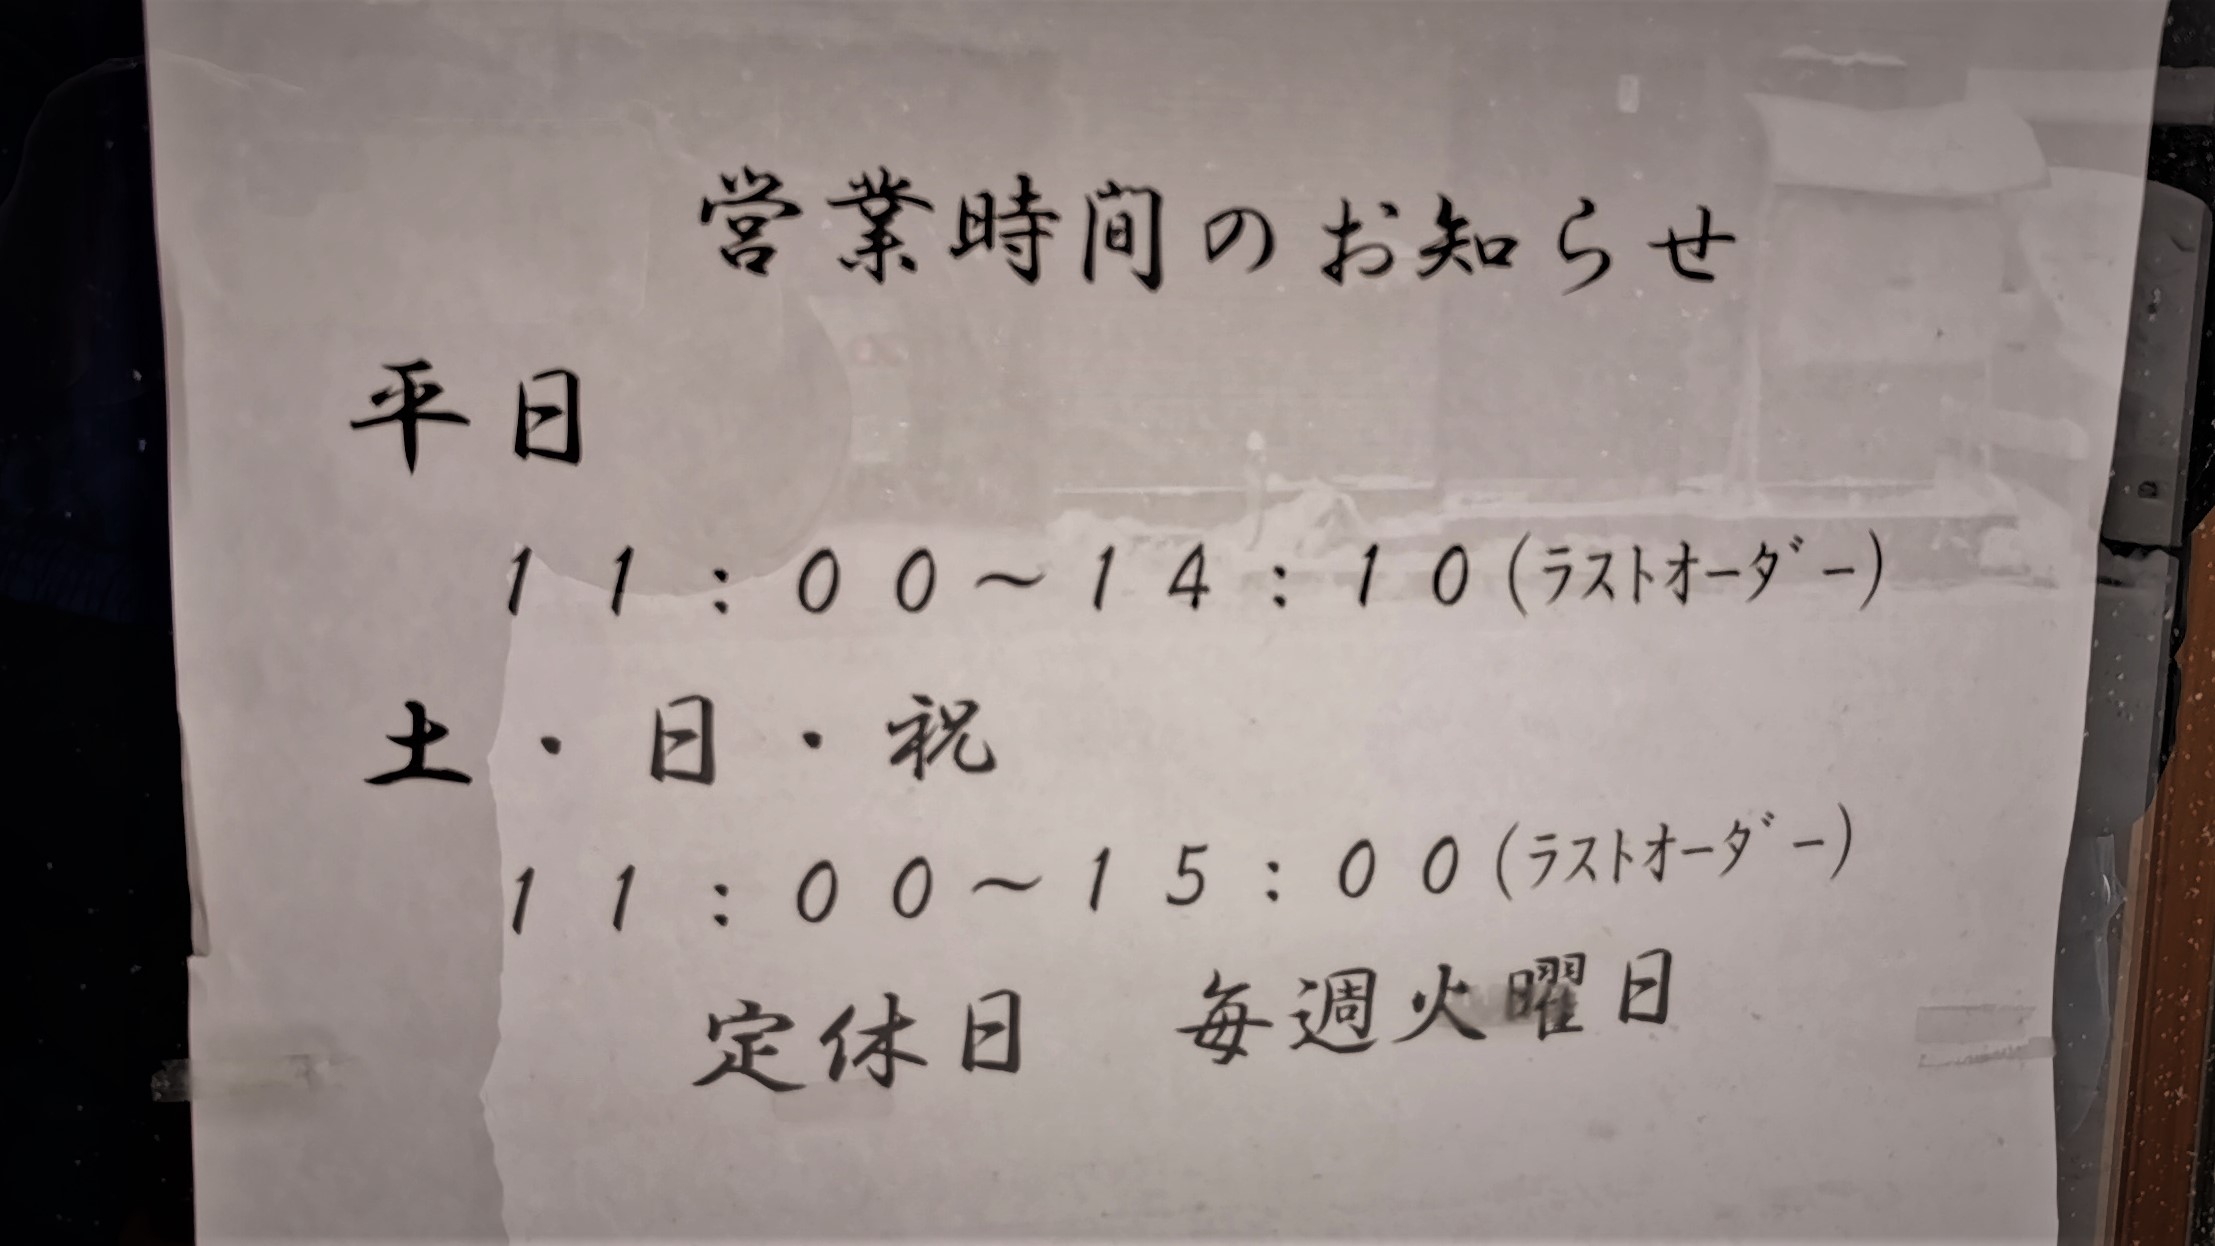 営業時間のお知らせ
平日
11:00～14:10(ﾗｽﾄｵｰﾀﾞｰ)
土・日・祝
11:00～15:00(ﾗｽﾄｵｰﾀﾞｰ)
定休日　毎週火曜日